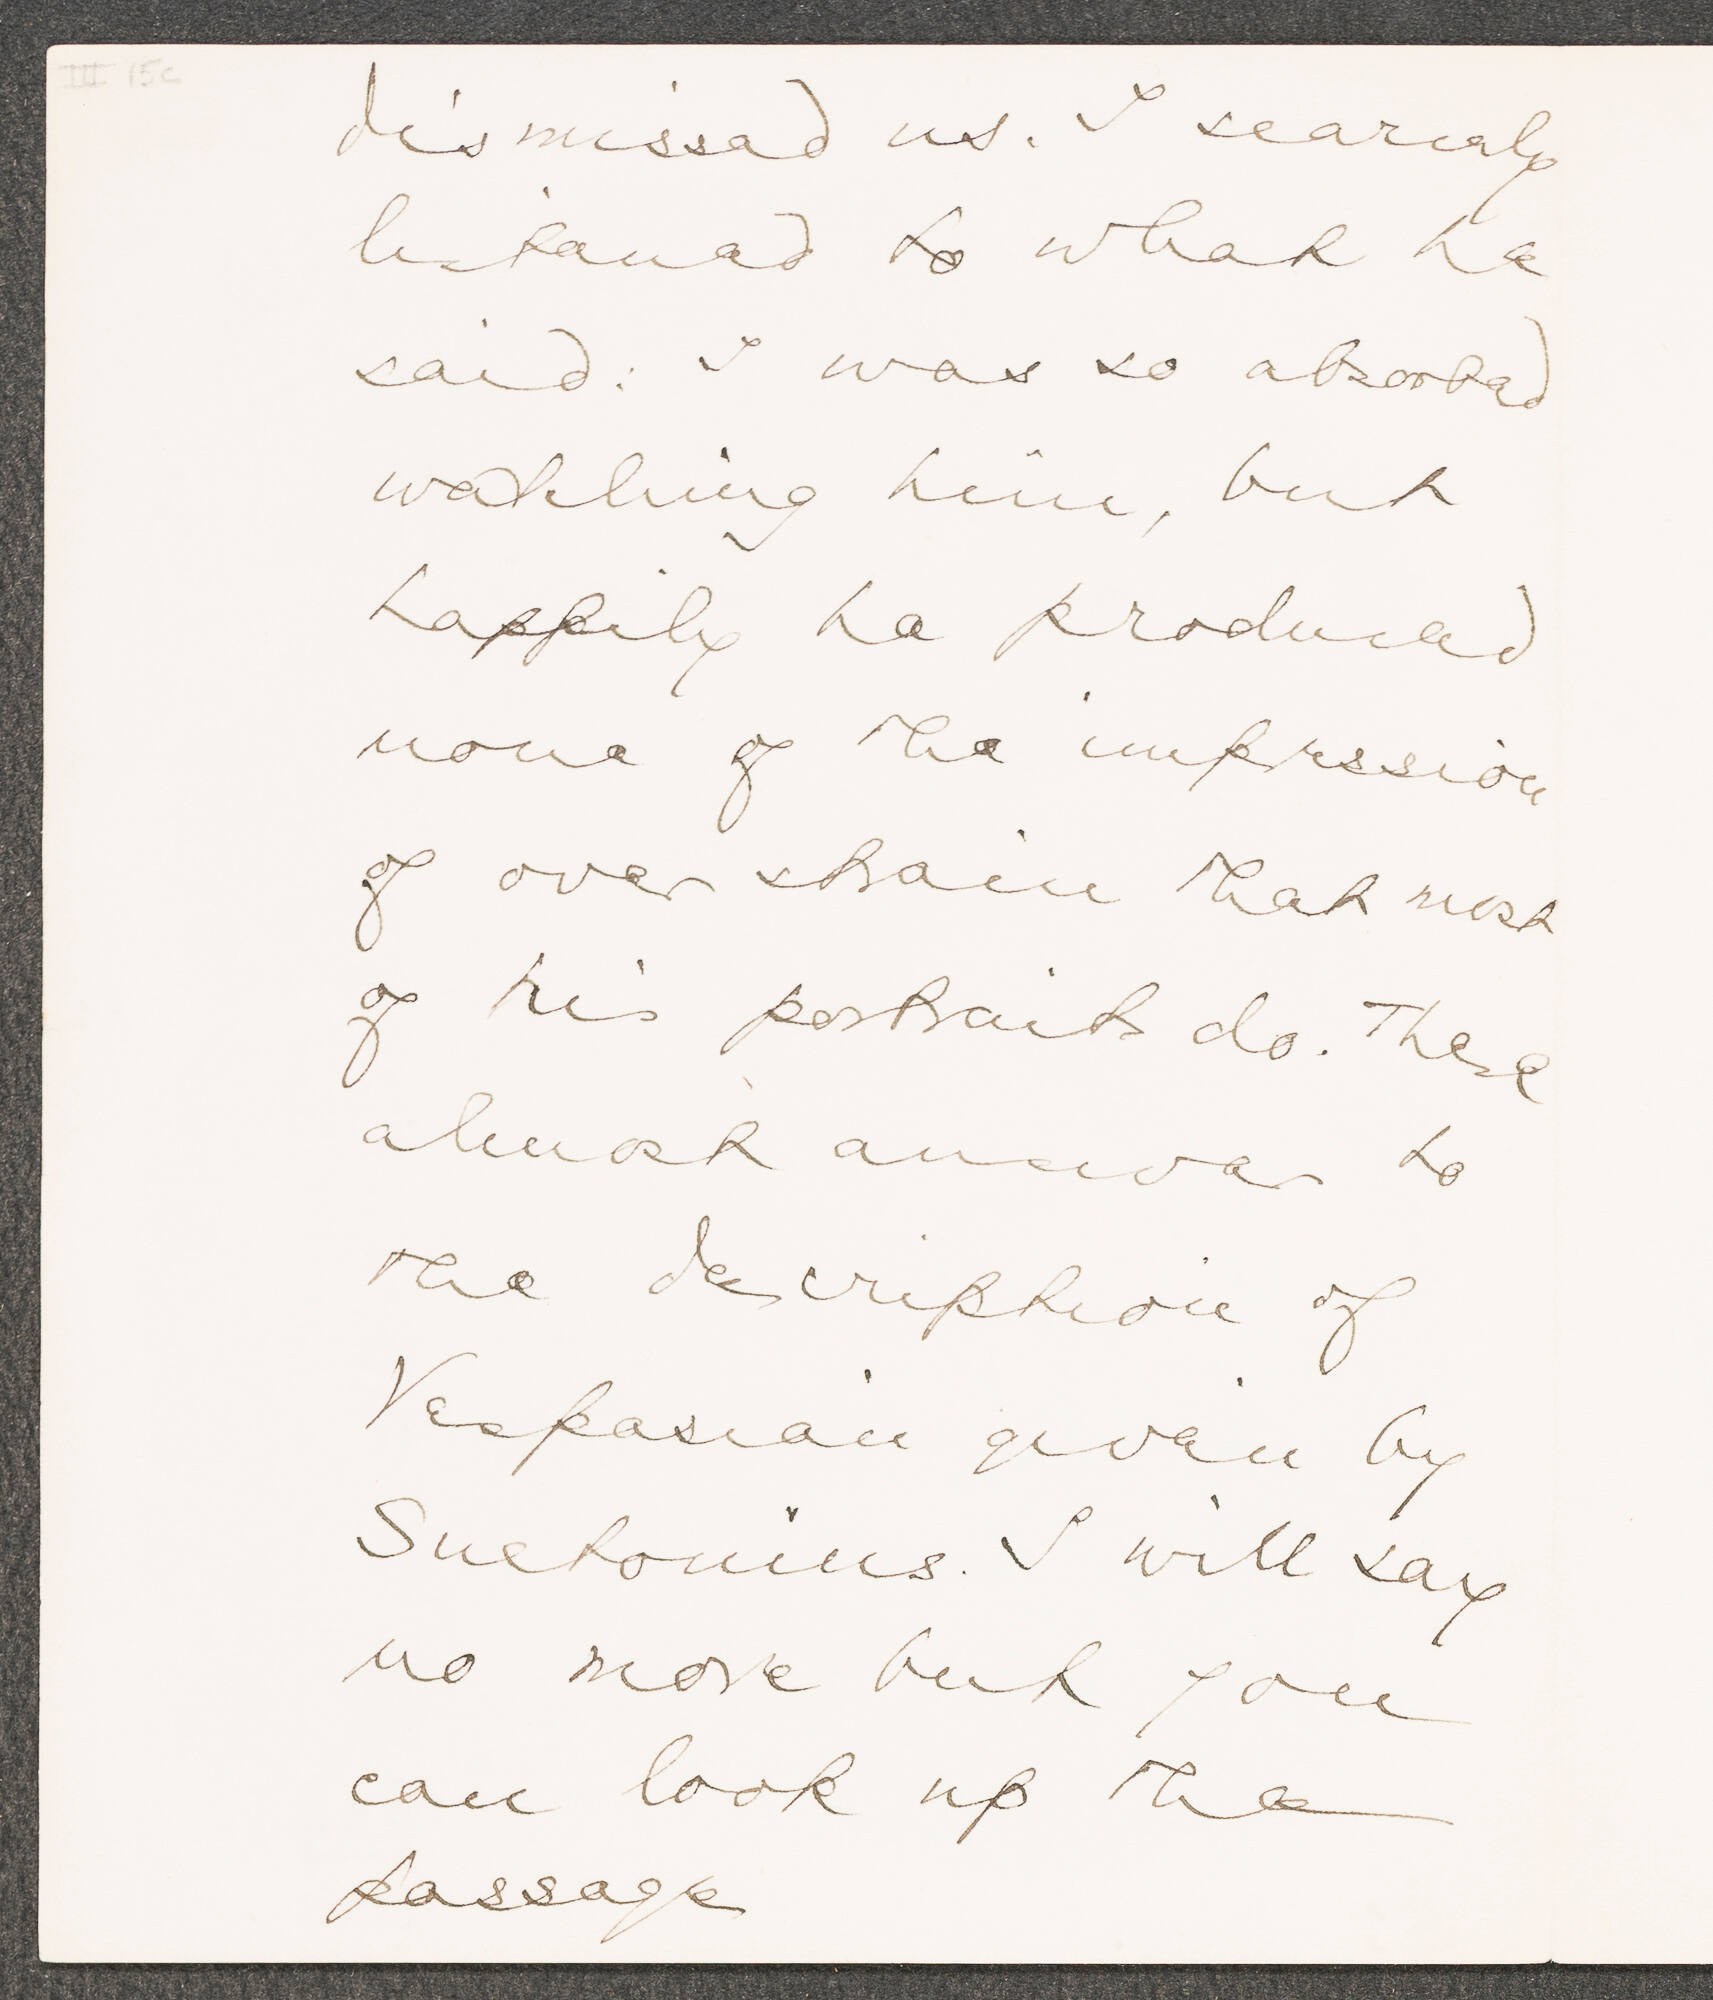 III 15c
dismissed us. I scarcely
listened to what he
said: I was so absorbed
watching him, but
happily he produced
none of the impression
of over strain that most
of his portraits do. These
almost answer to
the description of
Vespasian given by
Suetonius. I will say
no more but you
can look up the
passage